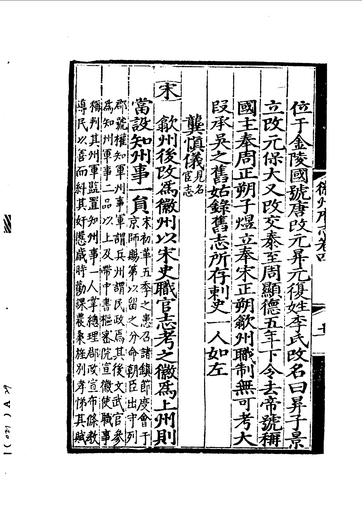 位于金陵國號唐改元昇元復姓李氏改名曰昪子景
立改元保大又改交泰至周顯德五年下令去帝號稱
國主奉周正朔子煜立奉宋正朔歙州職制無可考大
段承吳之舊姑錄舊志所存刺史一人如左
龔慎儀見名宦志
宋
歙州後改爲徽州以宋史職官志考之徽爲上州則
當設知州事一員宋初革五季之患召諸鎮節度會于
京師賜第以留之分命朝臣出守列
郡號權知軍州事軍謂兵州謂民政焉其後文武官參
爲知州軍事二品以上及帶中書樞密院宣徽使職事
稱判某州軍監置知州事一人掌總理郡政宣布條教
導民以善而糾其奸慝歲時勸課農桑旌別孝悌其賦
徽州府志卷四